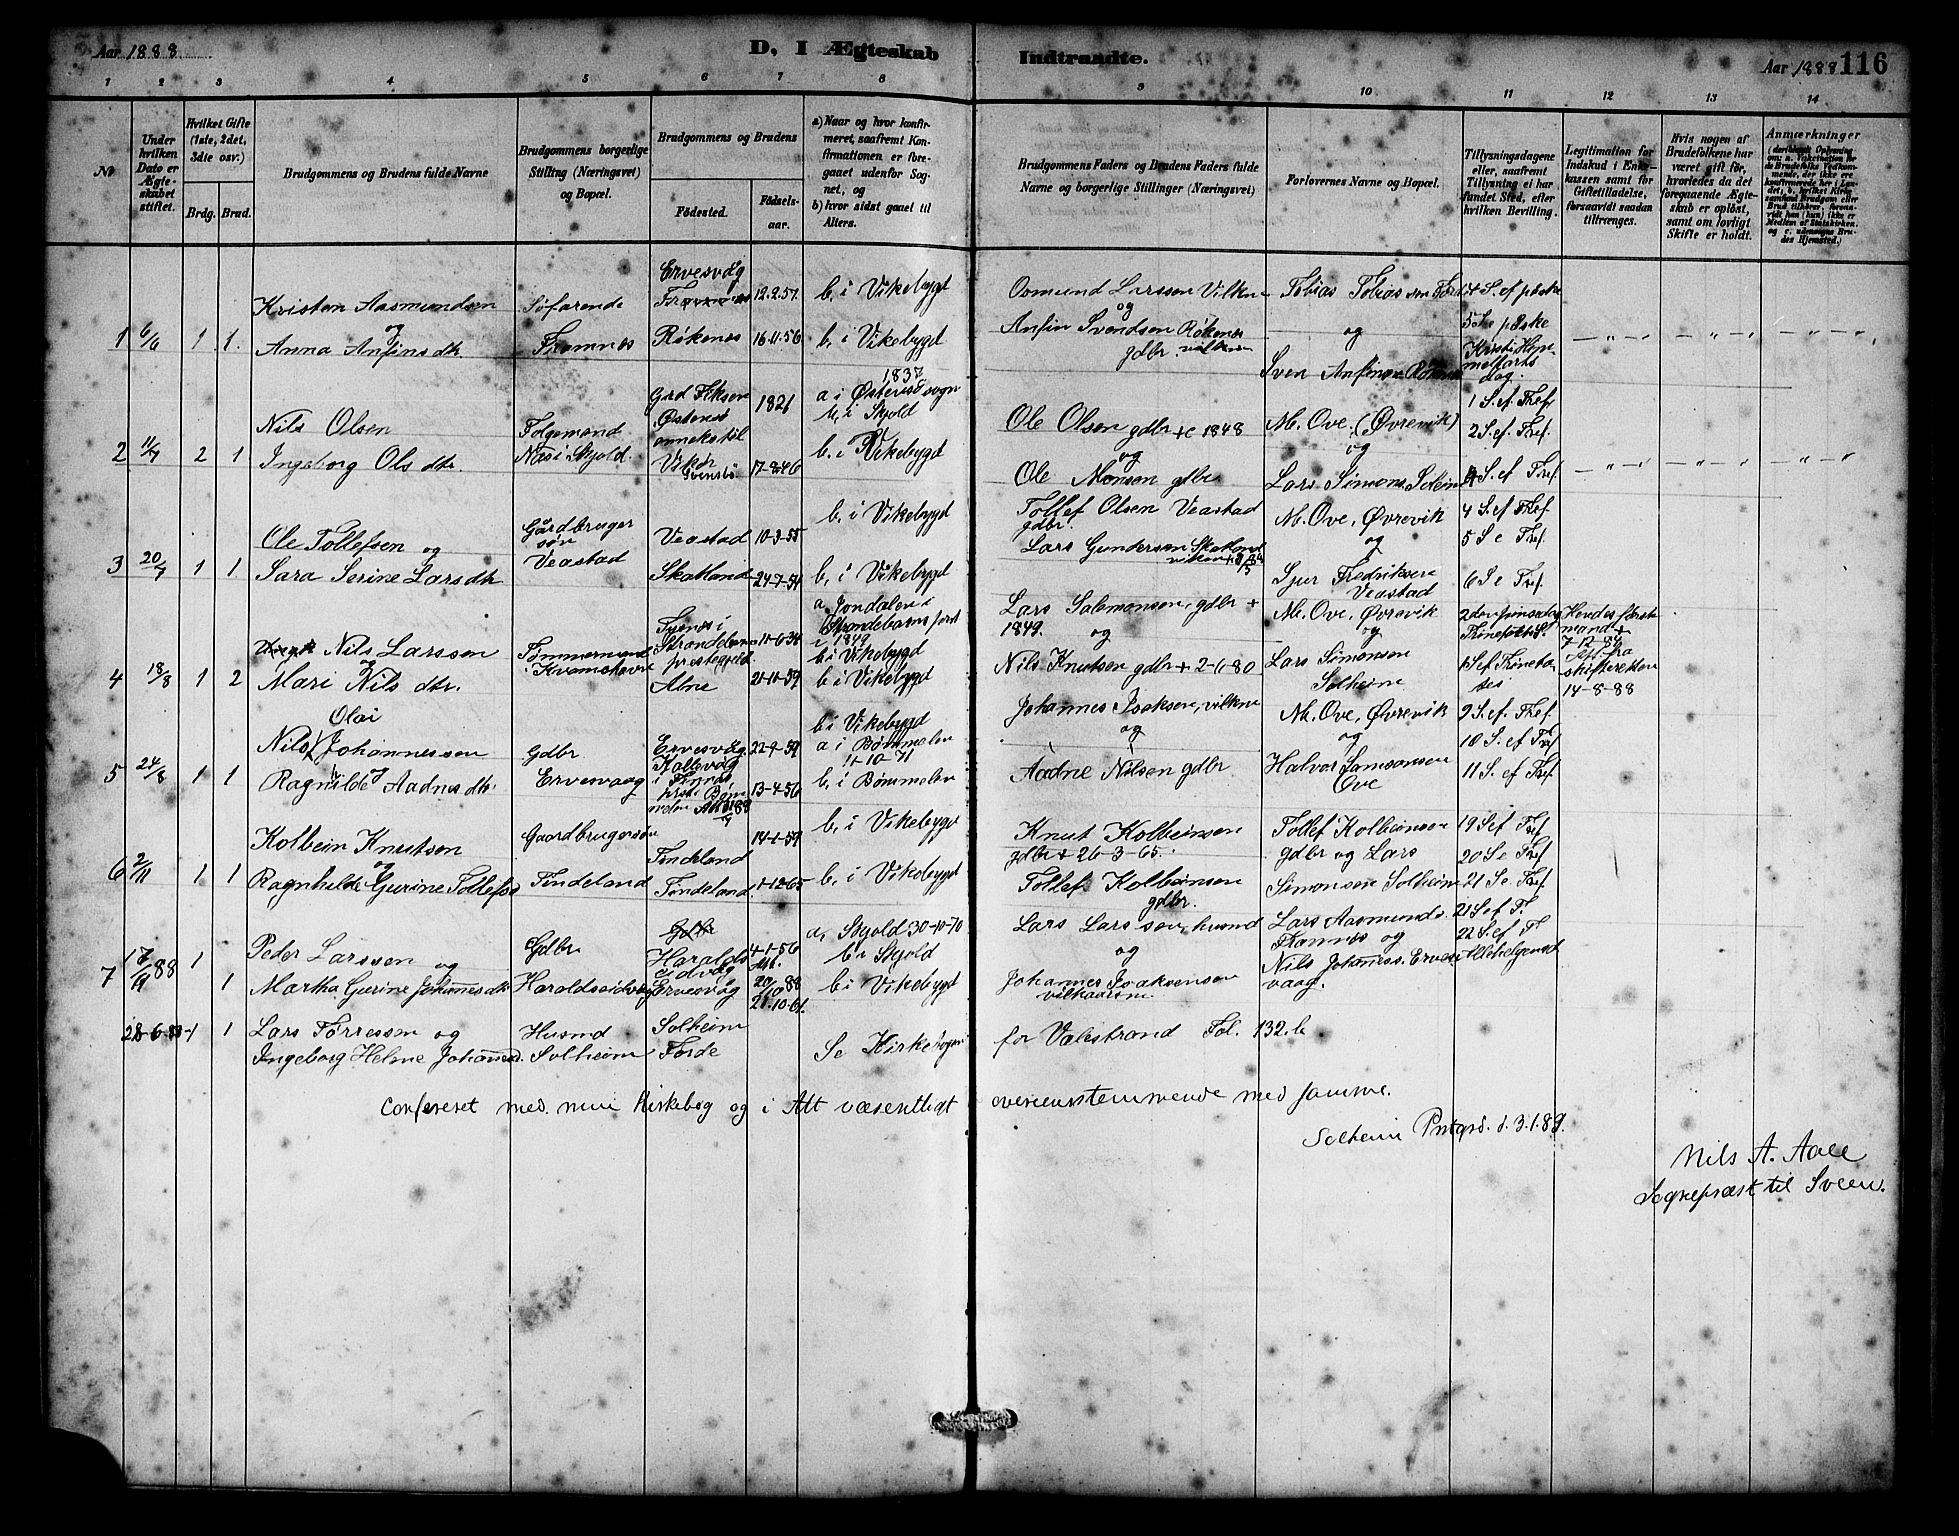 Aar 1888
D, I Ægteskab Indtraadte.
Aar 1888 116
1 2 3 4 5 6 7 8 9 10 11 12 13 14
№
Under hvilken Dato er Ægteskabet stiftet.
Hvilket Gifte (1ste, 2det, 3die osv.)
Brdg. Brud.
Brudgommens og Brudens fulde Navne
Brudgommens borgerlige Stilling (Næringsvei) og Bopæl.
Brudgommens og Brudens
Fødested. Fødselsaar.
a) Naar og hvor konfirmeret, saafremt Konfirmationen er foregaaet udenfor Sognet, og
b) hvor sidst gaaet til Alters.
Brudgommens Faders og Brudens Faders fulde Navne og borgerlige Stillinger (Næringsvei)
Forlovernes Navne og Bopæl.
Tillysningsdagene eller, saafremt Tillysning ei har fundet Sted, efter hvilken Bevilling.
Legitimation for Indskud i Enkekassen samt for Giftetilladelse, forsaavidt saadan tiltrænges.
Hvis nogen af Brudefolkene har været gift før, hvorledes da det foregaaende Ægteskab er opløst, samt om lovligt Skifte er holdt.
Anmærkninger
1 6/6 1 1.
Kristen Aasmundsen
og
Anna Anfinsdtr.
Søfarende
Framnes
Ervesvåg
Røkenes
12.2.57
16-11-56
b, i Vikebygd
b, i Vikebygd
Osmund Larssen Vilkm
og
Anfin Svendsen Røkenes
gdbr.
Tobias Tobiassen
og
Sven Anfinsen Røkenes
4 S. ef paaske
5 S. e paaske
Kristi Himmelfarts dag.
2 11/7 2 1
Nils Olsen
Ingeborg Olsdtr.
Folgemand
Næs i Skjold.
Vikør
1821
17-8-46
1837
a i Østensø sogn
b, i Skjold
b. i Vikebygd
Ole Olsen gdbr + c 1848
og
Ole Monsen gdbr
M. Ove. (Øvrevik)
og
Lars Simons. Solheim
1 S. ef Tref
2 S. ef. Tref.
4 S. ef Tref.
3 20/7 1 1
Ole Tollefsen og
Sara Serine Larsdtr
Gårdbruger
søn
Veastad
Veastad
Skatland
10-3-55
24-7-54
b, i Vikebygd
b, i Vikebygd
Tollef Olsen Veastad
gdbr.
Lars Gundersen Skatland
M. Ove, Øvrevik
og
Sjur Fredriksen
Veastad
4 S. ef Tref
5 S e Tref.
6 S. e Tref.
4 18/8 1 2
Nils Larssen
og
Mari Nilsdtr.
Tømmermand
i Kvamshavn
Tysnes i
Strandebarm
prestegjeld
Alne
11-6-34
21-11-59
a, Jondalen i
Strandebarms prest
i 1849
b i Vikebygd
b i Vikebygd
Lars Salemonsen, gdbr +
1849. og
Nils Knutsen gdbr + 2-6-80
M. Ove, Øvrevik
og
Lars Simonsen
Solheim
2den pinsedag
1 S ef Trinita
tis
Hendes første
mand +
7-12-84
skifteretten
14-8-88
5 24/8 1 1
Olai
Nils Johannessen
Ragnilde Aadnesdtr.
Gdbr
Ervesvaag
Ervesvåg
22-9-59
13-4-56
b i Vikebygd
a i Bømmelen
11-10-71
b, i Bømmelen
Johannes Isaksen, vilkm
og
Aadne Nilsen gdbr
M. Ove, Øvrevik
og
Halvor Samsonsen
Ove
9 S. ef. Tref.
10 S. ef Tref
11 S. ef Tref.
6 2/11 1 1
Kolbein Knutsen
og
Ragnhilde Gurine Tollefsd
Gaardbrugersøn
Tindeland
Tindeland
Tindeland
14-1-59
1-12-65
b, i Vikebygd
b, i Vikebygd
Knut Kolbeinsen
gdbr + 26-3-65.
Tollef Kolbeinsen
gdbr.
Tollef Kolbeinsen
gdbr og Lars
Simonsen Solheim
19 S ef Tref
20 S e Tref
21 S e Tref.
7 17/11 88 1 1
Peder Larssen og
Martha Gurine Johannesdtr
Gdbr
Haraldseidvåg
Haralds
eidvåg
Ervesvåg
4-1-56
20/10 88
21.10-61.
a, Skjold 30-10-70
b i Skjold
b i Vikebygd
Lars Larssen, husmd
og
Johannes Isaksensen
vilkaarsm.
Lars Aasmunds.
Framnes og
Nils Johanness. Erves
vaag.
21 S ef T.
22 S. ef T
Allehelgensd
28-6-88 1 1
Lars Tørressen og
Ingeborg Helene Johannesd.
Husmd
Solheim
Solheim
Førde
Se Kirkebogen for Valestrand Fol. 132.b
Confereret med min Kirkebog og i Alt væsentligt overeensstemmende med samme.
Solheim Pmtgrd. d. 3.1.89.
Nils A. Aall
Sognepræst til Sveen.